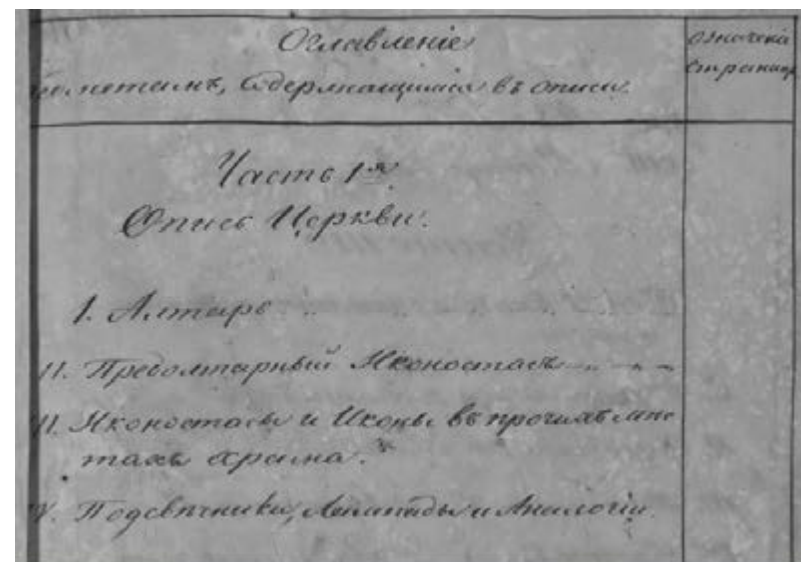 Оглавленіе
предметамъ, содержащимся въ описи.
означеніе
страницъ
Часть 1я
Опись Церкви.
I. Алтарь
II. Предолтарный Иконостасъ
III. Иконостасы и Иконы въ прочихъ мѣс
тахъ храма.
IV. Подсвѣчники, Лампады и Аналогіи.